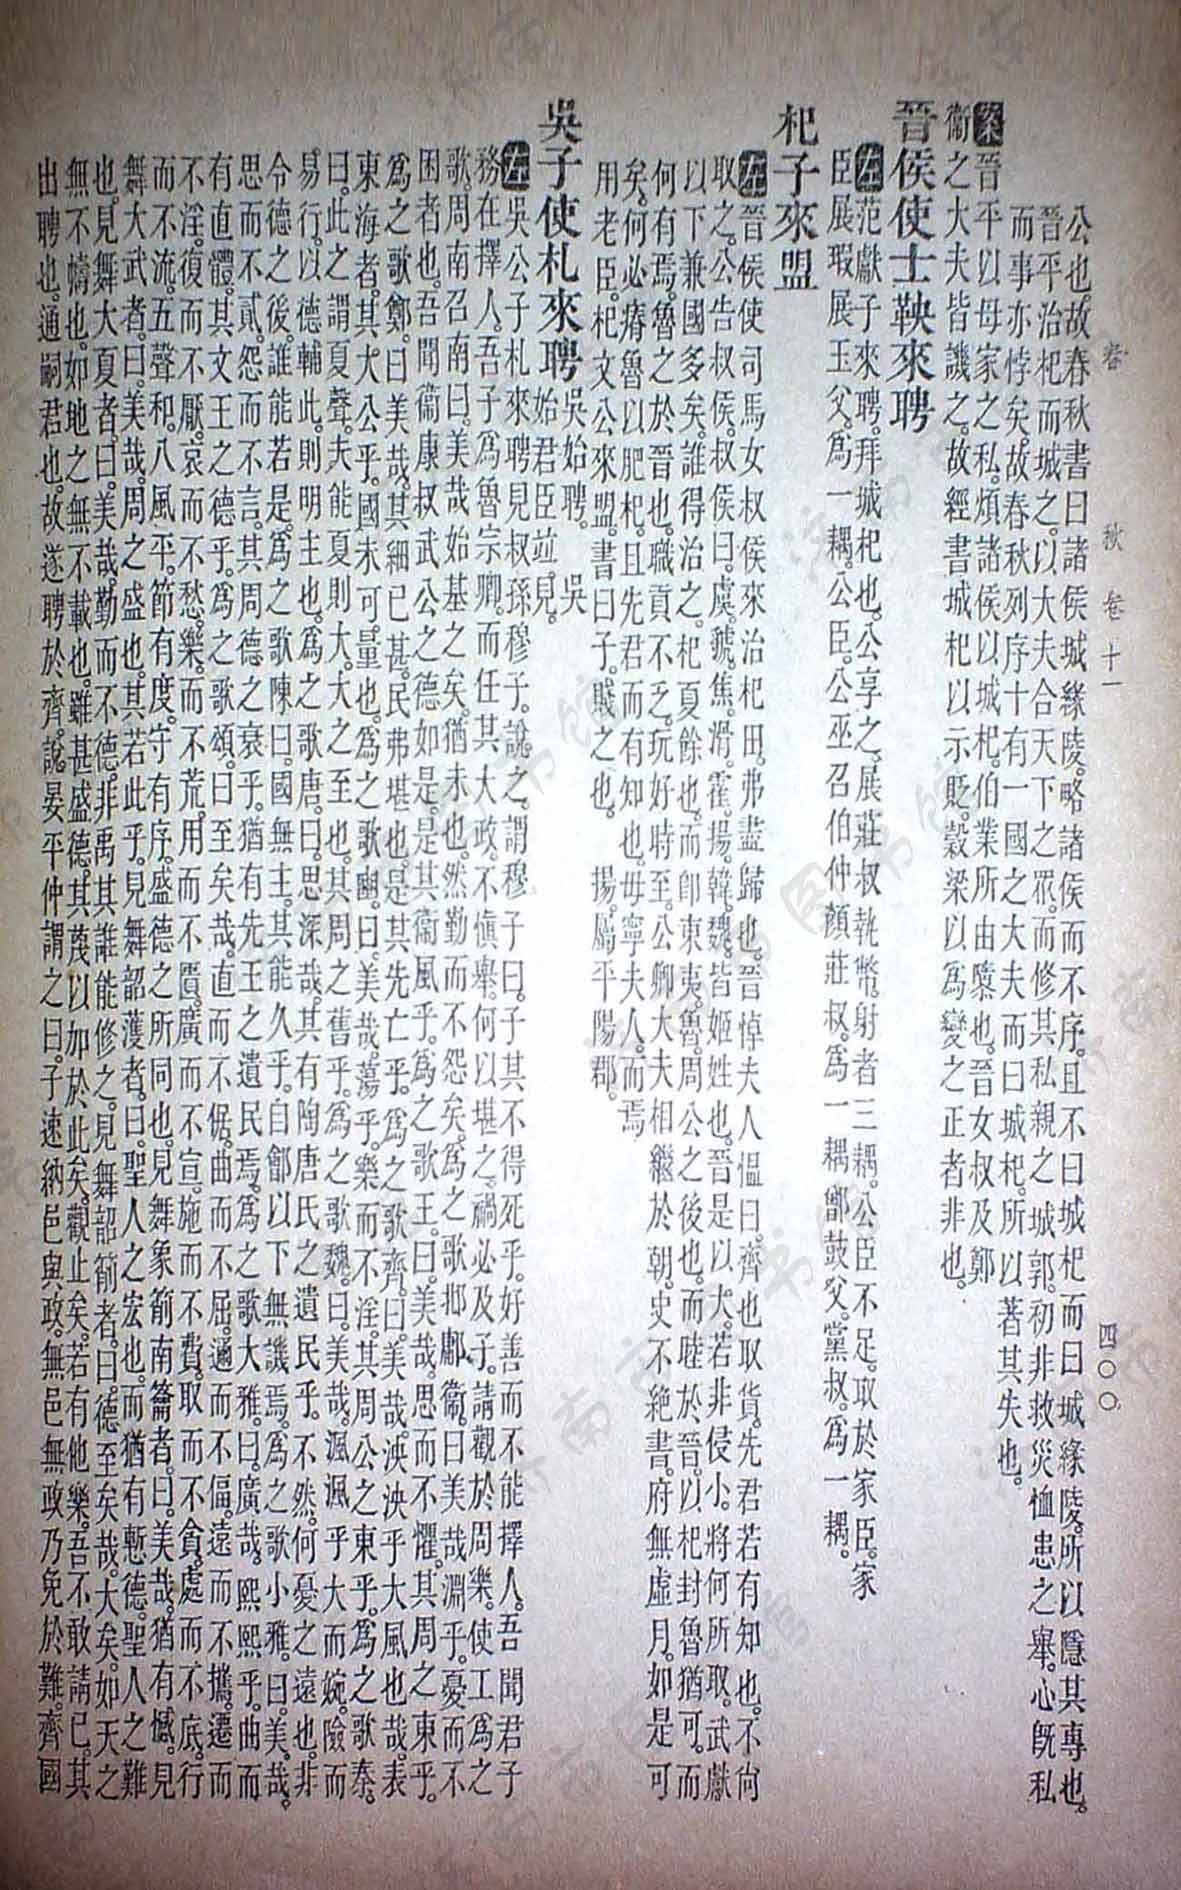 春　秋　卷十一　四〇〇
公也。故春秋書曰諸侯城緣陵。略諸侯而不序。且不曰城杞而曰城緣陵。所以隱其專也。
晉平治杞而城之。以大夫合天下之眾。而修其私親之城郭。初非救災恤患之舉。心既私
而事亦悖矣。故春秋列序十有一國之大夫而曰城杞。所以著其失也。
案晉平以母家之私。煩諸侯以城杞。伯業所由隳也。晉女叔及鄭
衞之大夫皆譏之。故經書城杞以示貶。穀梁以爲變之正者非也。
晉侯使士鞅來聘
左范獻子來聘。拜城杞也。公享之。展莊叔執幣。射者三耦。公臣不足。取於家臣。家
臣展瑕展玉父。爲一耦。公臣。公巫召伯仲顏莊叔。爲一耦鄫鼓父。黨叔。爲一耦。
杞子來盟
左晉侯使司馬女叔侯來治杞田。弗盡歸也。晉悼夫人慍曰。齊也取貨。先君若有知也。不尚
取之。公告叔侯。叔侯曰。虞。虢。焦。滑。霍。揚。韓。魏。皆姬姓也。晉是以大。若非侵小。將何所取。武獻
以下兼國多矣。誰得治之。杞夏餘也。而卽東夷。魯。周公之後也。而睦於晉。以杞封魯猶可。而
何有焉。魯之於晉也。職貢不乏。玩好時至。公卿大夫相繼於朝。史不絕書。府無虛月。如是可
矣。何必瘠魯以肥杞。且先君而有知也。毋寧夫人。而焉
用老臣。杞文公來盟。書曰子。賤之也。　揚。屬平陽郡。
吳子使札來聘吳始聘。吳
始君臣並見。
左吳公子札來聘見叔孫穆子。說之。謂穆子曰。子其不得死乎。好善而不能擇人。吾聞君子
務在擇人。吾子爲魯宗卿。而任其大政。不愼舉。何以堪之。禍必及子。請觀於周樂。使工爲之
歌。周南召南曰。美哉始基之矣。猶未也。然勤而不怨矣。爲之歌邶鄘衞。曰美哉淵乎。憂而不
困者也。吾聞衞康叔武公之德如是。是其衞風乎。爲之歌王。曰。美哉。思而不懼。其周之東乎。
爲之歌鄭。曰美哉。其細已甚。民弗堪也。是其先亡乎。爲之歌齊。曰美哉。泱泱乎大風也哉。表
東海者。其大公乎。國未可量也。爲之歌豳。曰。美哉。蕩乎。樂而不淫。其周公之東乎。爲之歌秦。
曰。此之謂夏聲。夫能夏則大。大之至也。其周之舊乎。爲之歌魏。曰。美哉。渢渢乎大而婉。險而
易行。以德輔此。則明主也。爲之歌唐。曰。思深哉。其有陶唐氏之遺民乎。不然。何憂之遠也。非
令德之後。誰能若是。爲之歌陳曰。國無主。其能久乎。自鄶以下無譏焉。爲之歌小雅。曰。美哉。
思而不貳。怨而不言。其周德之衰乎。猶有先王之遺民焉。爲之歌大雅。曰。廣哉。熙熙乎。曲而
有直體。其文王之德乎。爲之歌頌。曰至矣哉。直而不倨。曲而不屈。邇而不偪。遠而不攜。遷而
不淫。復而不厭。哀而不愁。樂而不荒。用而不匱。廣而不宣。施而不費。取而不貪。處而不底。行
而不流。五聲和。八風平。節有度。守有序。盛德之所同也。見舞象箾南籥者。曰。美哉。猶有憾。見
舞大武者。曰。美哉。周之盛也。其若此乎。見舞韶濩者。曰。聖人之宏也。而猶有慙德。聖人之難
也。見舞大夏者。曰。美哉。勤而不德。非禹其誰能修之。見舞韶箾者。曰。德至矣哉。大矣。如天之
無不幬也。如地之無不載也。雖甚盛德。其蔑以加於此矣。觀止矣。若有他樂。吾不敢請已。其
出聘也。通嗣君也。故遂聘於齊。說晏平仲謂之曰。子速納邑與政。無邑無政乃免於難。齊國